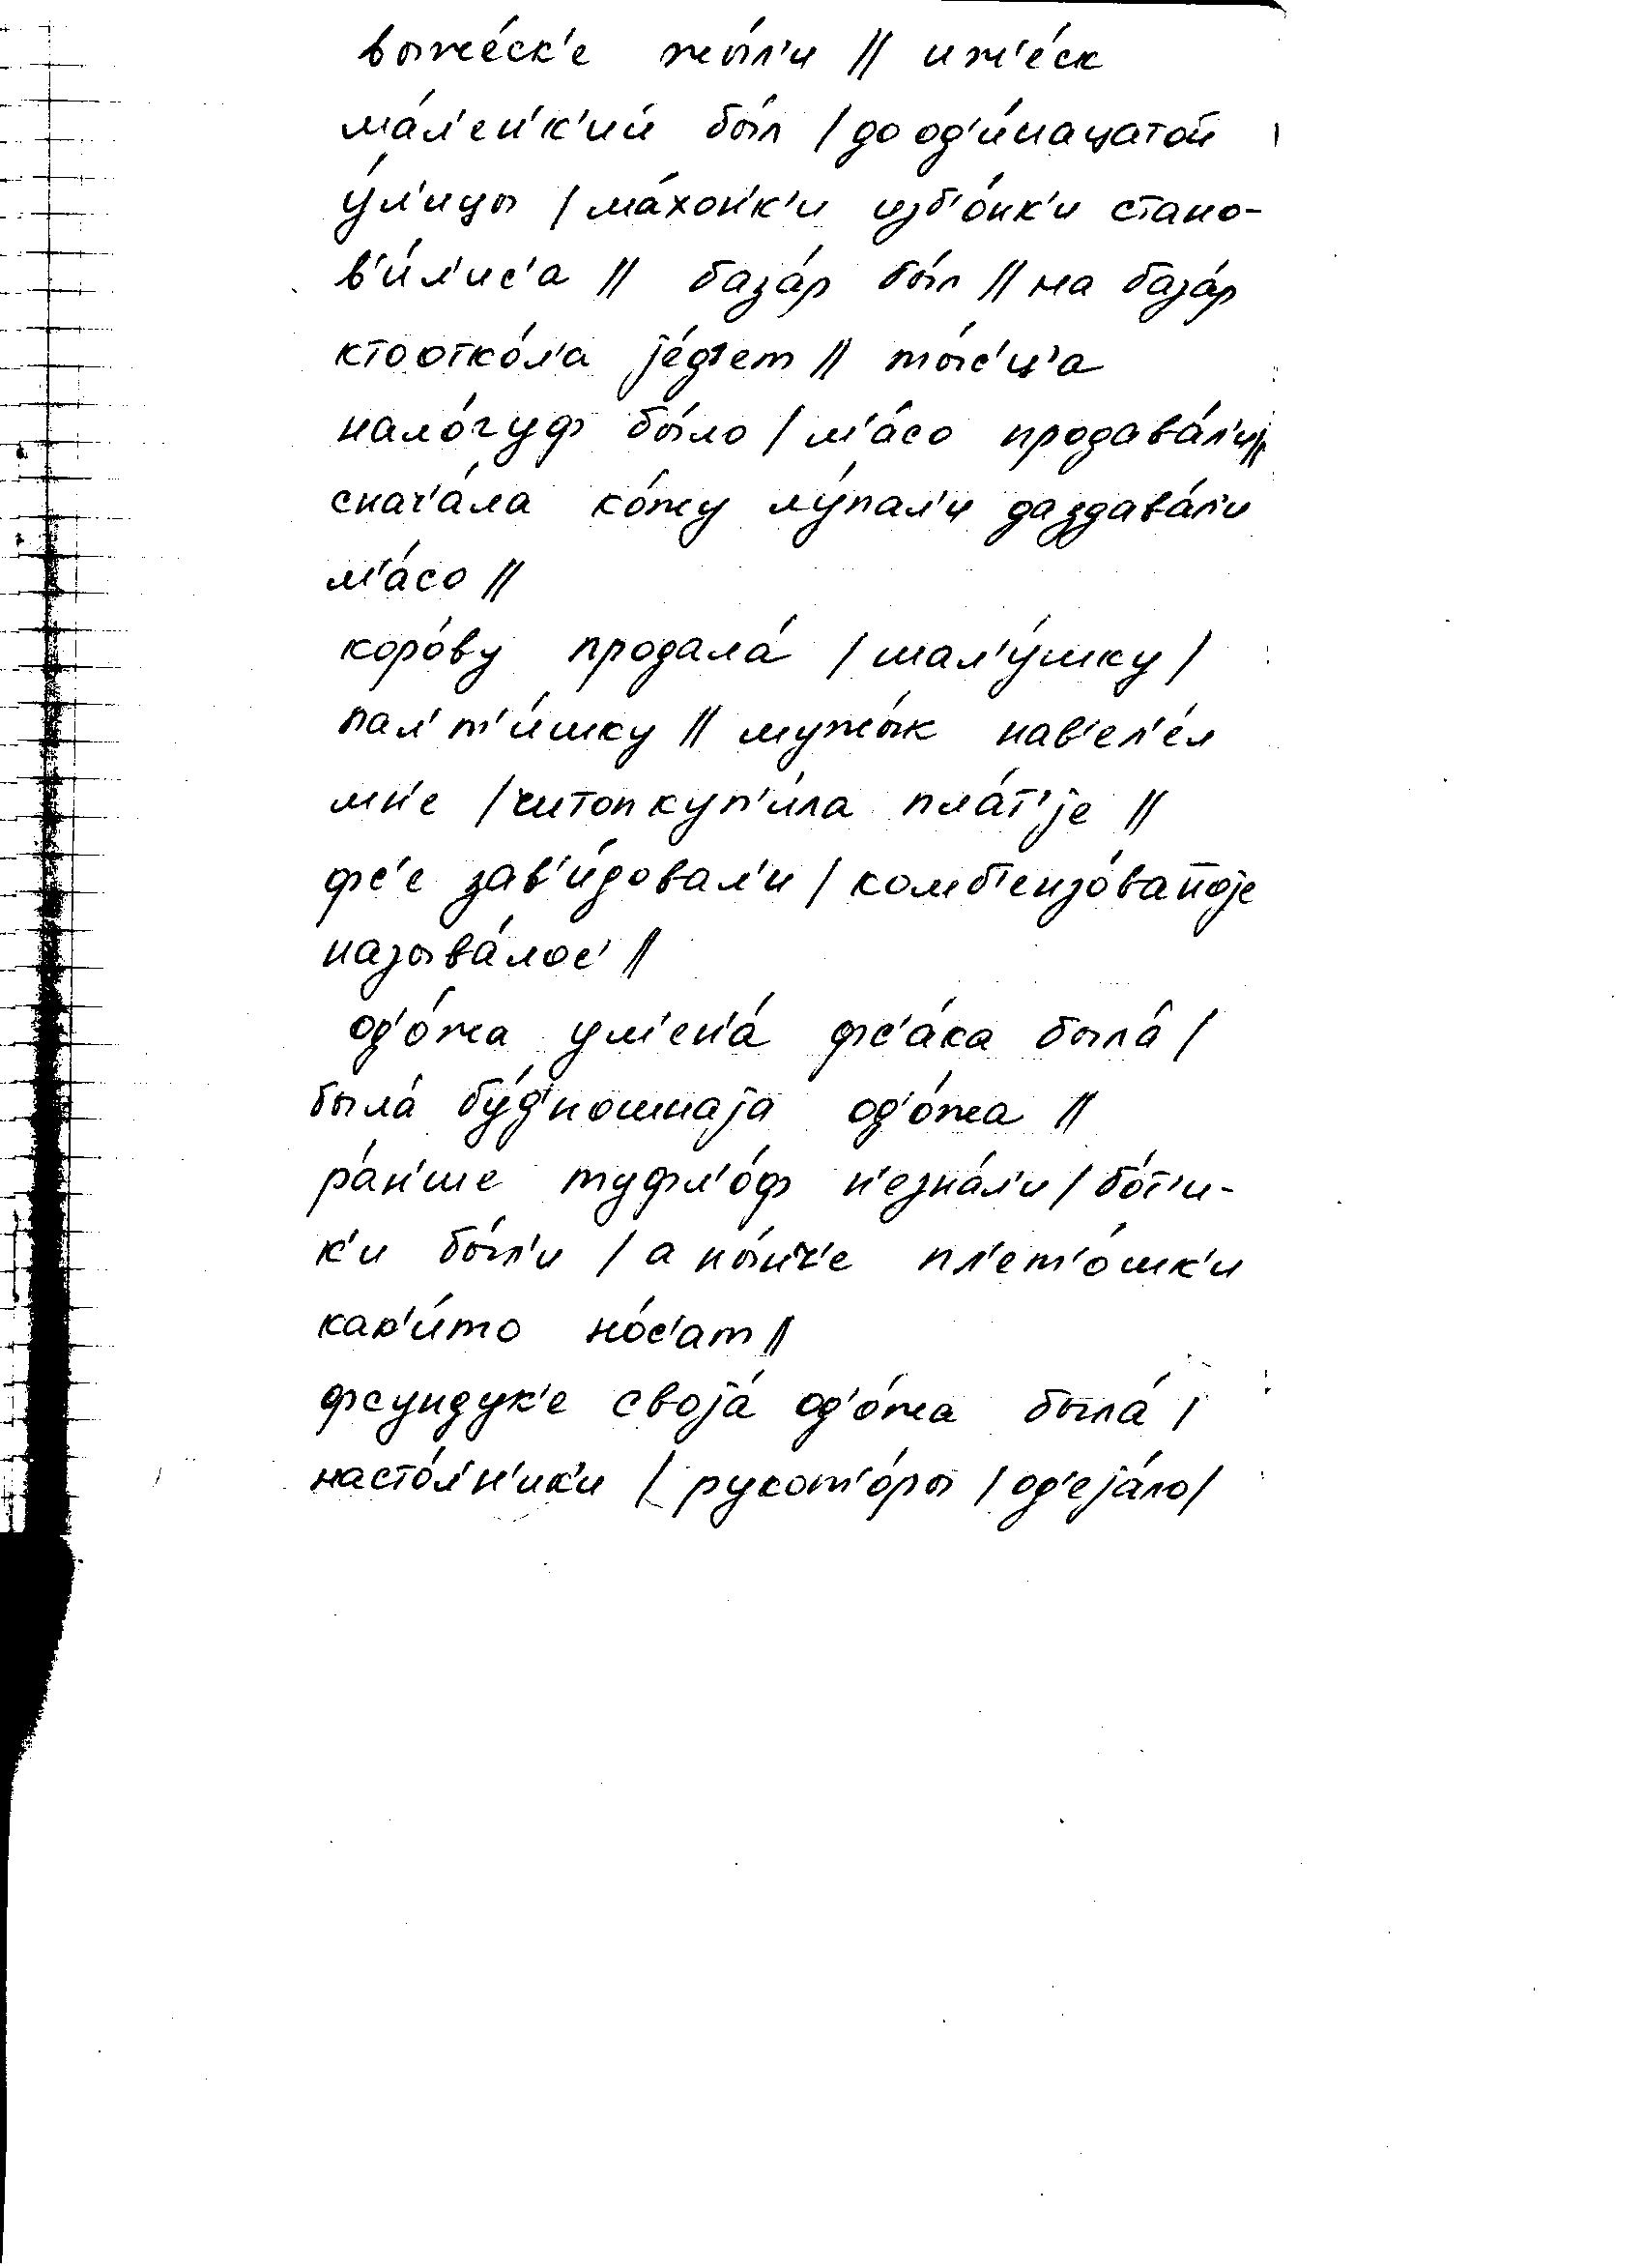 выже́ск'е жы́л'и // иж'е́ск
ма́л'ен'к'ий бы́л / до од'и́нацатой
у́л'ицы / ма́хон'к'и изб'о́нк'и стано-
в'и́л'ис'а // база́р бы́л // на база́р
кто отко́л'а jе́д'ет // ты́с'ц'а
нало́гуф бы́ло / м'а́со продава́л'и //
снач'а́ла ко́жу лу́пал'и даздава́л'и
м'а́со //
коро́ву продала́ / шал'у́шку /
пал'т'и́шку // мужы́к нав'ел'е́л
мн'е / читоп куп'и́ла пла́т'jе //
фс'е зав'и́довал'и / комб'ензо́ваноjе
называ́лос' //
од'о́жа ум'ен'а́ фс'а́ка была́ /
была́ бу́д'ношнаjа од'о́жа //
ра́н'ше туфл'о́ф н'езна́л'и / бо́т'и-
к'и бы́л'и / а ны́нч'е пл'ет'о́шк'и
как'и́то но́с'ат //
фсундук'е своjа́ од'о́жа была́ /
насто́л'н'ик'и / рукот'о́ры / од'еjа́ло /